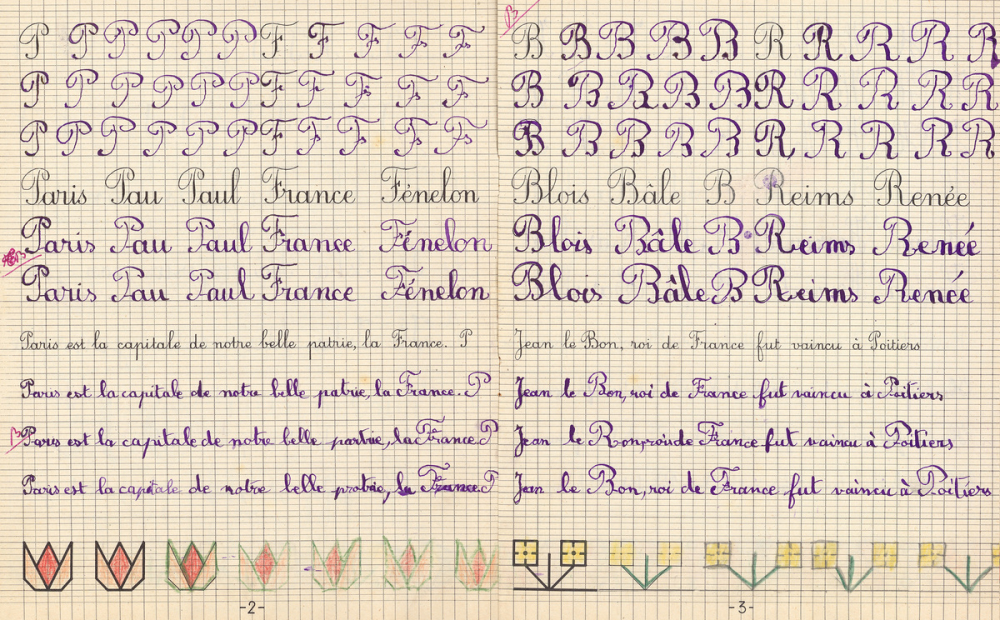 P P P P P P F F F F F
P P P P P P F F F F F
P P P P P P F F F F F
Paris Pau Paul France Fénelon
Paris Pau Paul France Fénelon
Paris Pau Paul France Fénelon
Paris est la capitale de notre belle patrie, la France. P
Paris est la capitale de notre belle patrie, la France. P
Paris est la capitale de notre belle partrie, la France P
Paris est la capitale de notre belle protrie, la France. P
-2-
B
B B B B B R R R R R
B B B B B R R R R R
B B B B B R R R R R
Blois Bâle B Reims Renée
Blois Bâle B Reims Renée
Blois Bâle B Reims Renée
Jean le Bon, roi de France fut vaincu à Poitiers
Jean le Bon, roi de France fut vaincu à Poitiers
Jean le France fut vaincu à Poitiers
Jean le Bon, roi de France fut vaincu à Poitiers
-3-